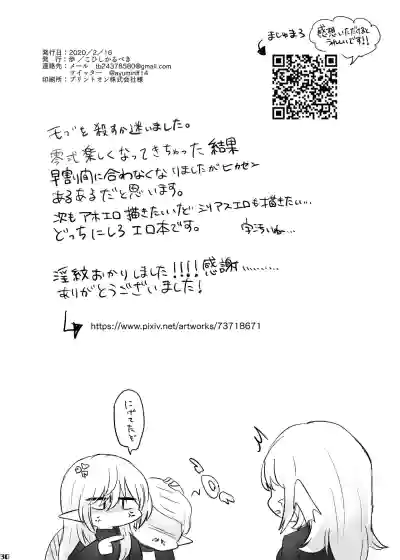 発行日：2020/2/16
発　行：歩／こひしかるべき
連絡先：メール　tb24376580@gmail.com
ツイッター　@ayumin#14
印刷所：プリントオン株式会社様
ましゅまろ
感想いただけると
うれしいです!!
モブを殺すか迷いました。
零式楽しくなってきちゃった結果
早割間に合わなくなりましたがヒカセン
あるあるだと思います。
次もアホエロ描きたいけどシリアスエロも描きたい…
どっちにしろエロ本です。
字汚いね…
淫紋おかりしました!!!!感謝…………
ありがとうございました!
https://www.pixiv.net/artworks/73718671
にげてたぞ
30